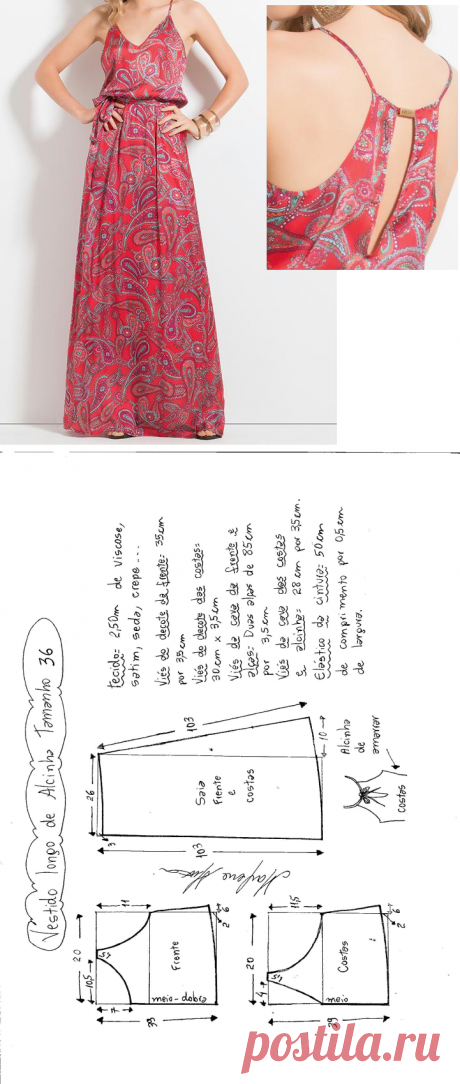 Vestido longo de Alcinha Tamanho 36
tecido: 2,50m de viscose,
satim, seda, crepe...
Viés do decote da frente: 35cm
por 3,5cm
Viés do decote das costas:
30cm x 3,5cm
Viés da cava da frente e
alças: Duas alças de 85cm
por 3,5cm
Viés da cava das costas
& alcinha: 28cm por 3,5cm.
Elástico da cintura: 50cm
de comprimento por 0,5cm
de largura.
103
26
3
Saia
Frente
e
costas
103
10
Alcinha
de
amarrar
costas
Marlene
11
20
10,5
7
Frente
meio-dobra
6
2
11,5
20
4
Costas
meio
6
2
postila.ru